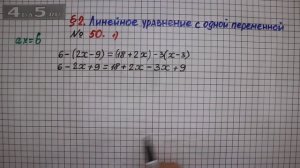 4 5
§2. Линейное уравнение с одной переменной
ax=b № 50. 1)
6-(2x-9)=(18+2x)-3(x-3)
6-2x+9=18+2x-3x+9